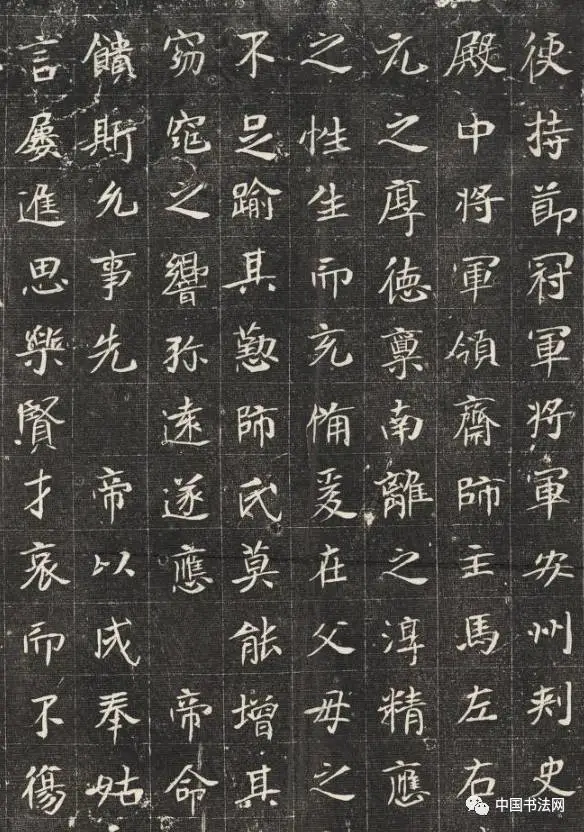 使持節冠軍將軍安州刾史
殿中將軍領齋師主馬左右
元之厚德稟南離之淳精應
之性生而充備爰在父母之
不足踰其懃師氏莫能增其
窈窕之響弥遠遂應 帝命
饋斯允事先 帝以成奉姑
言屢進思樂賢才哀而不傷
中国书法网